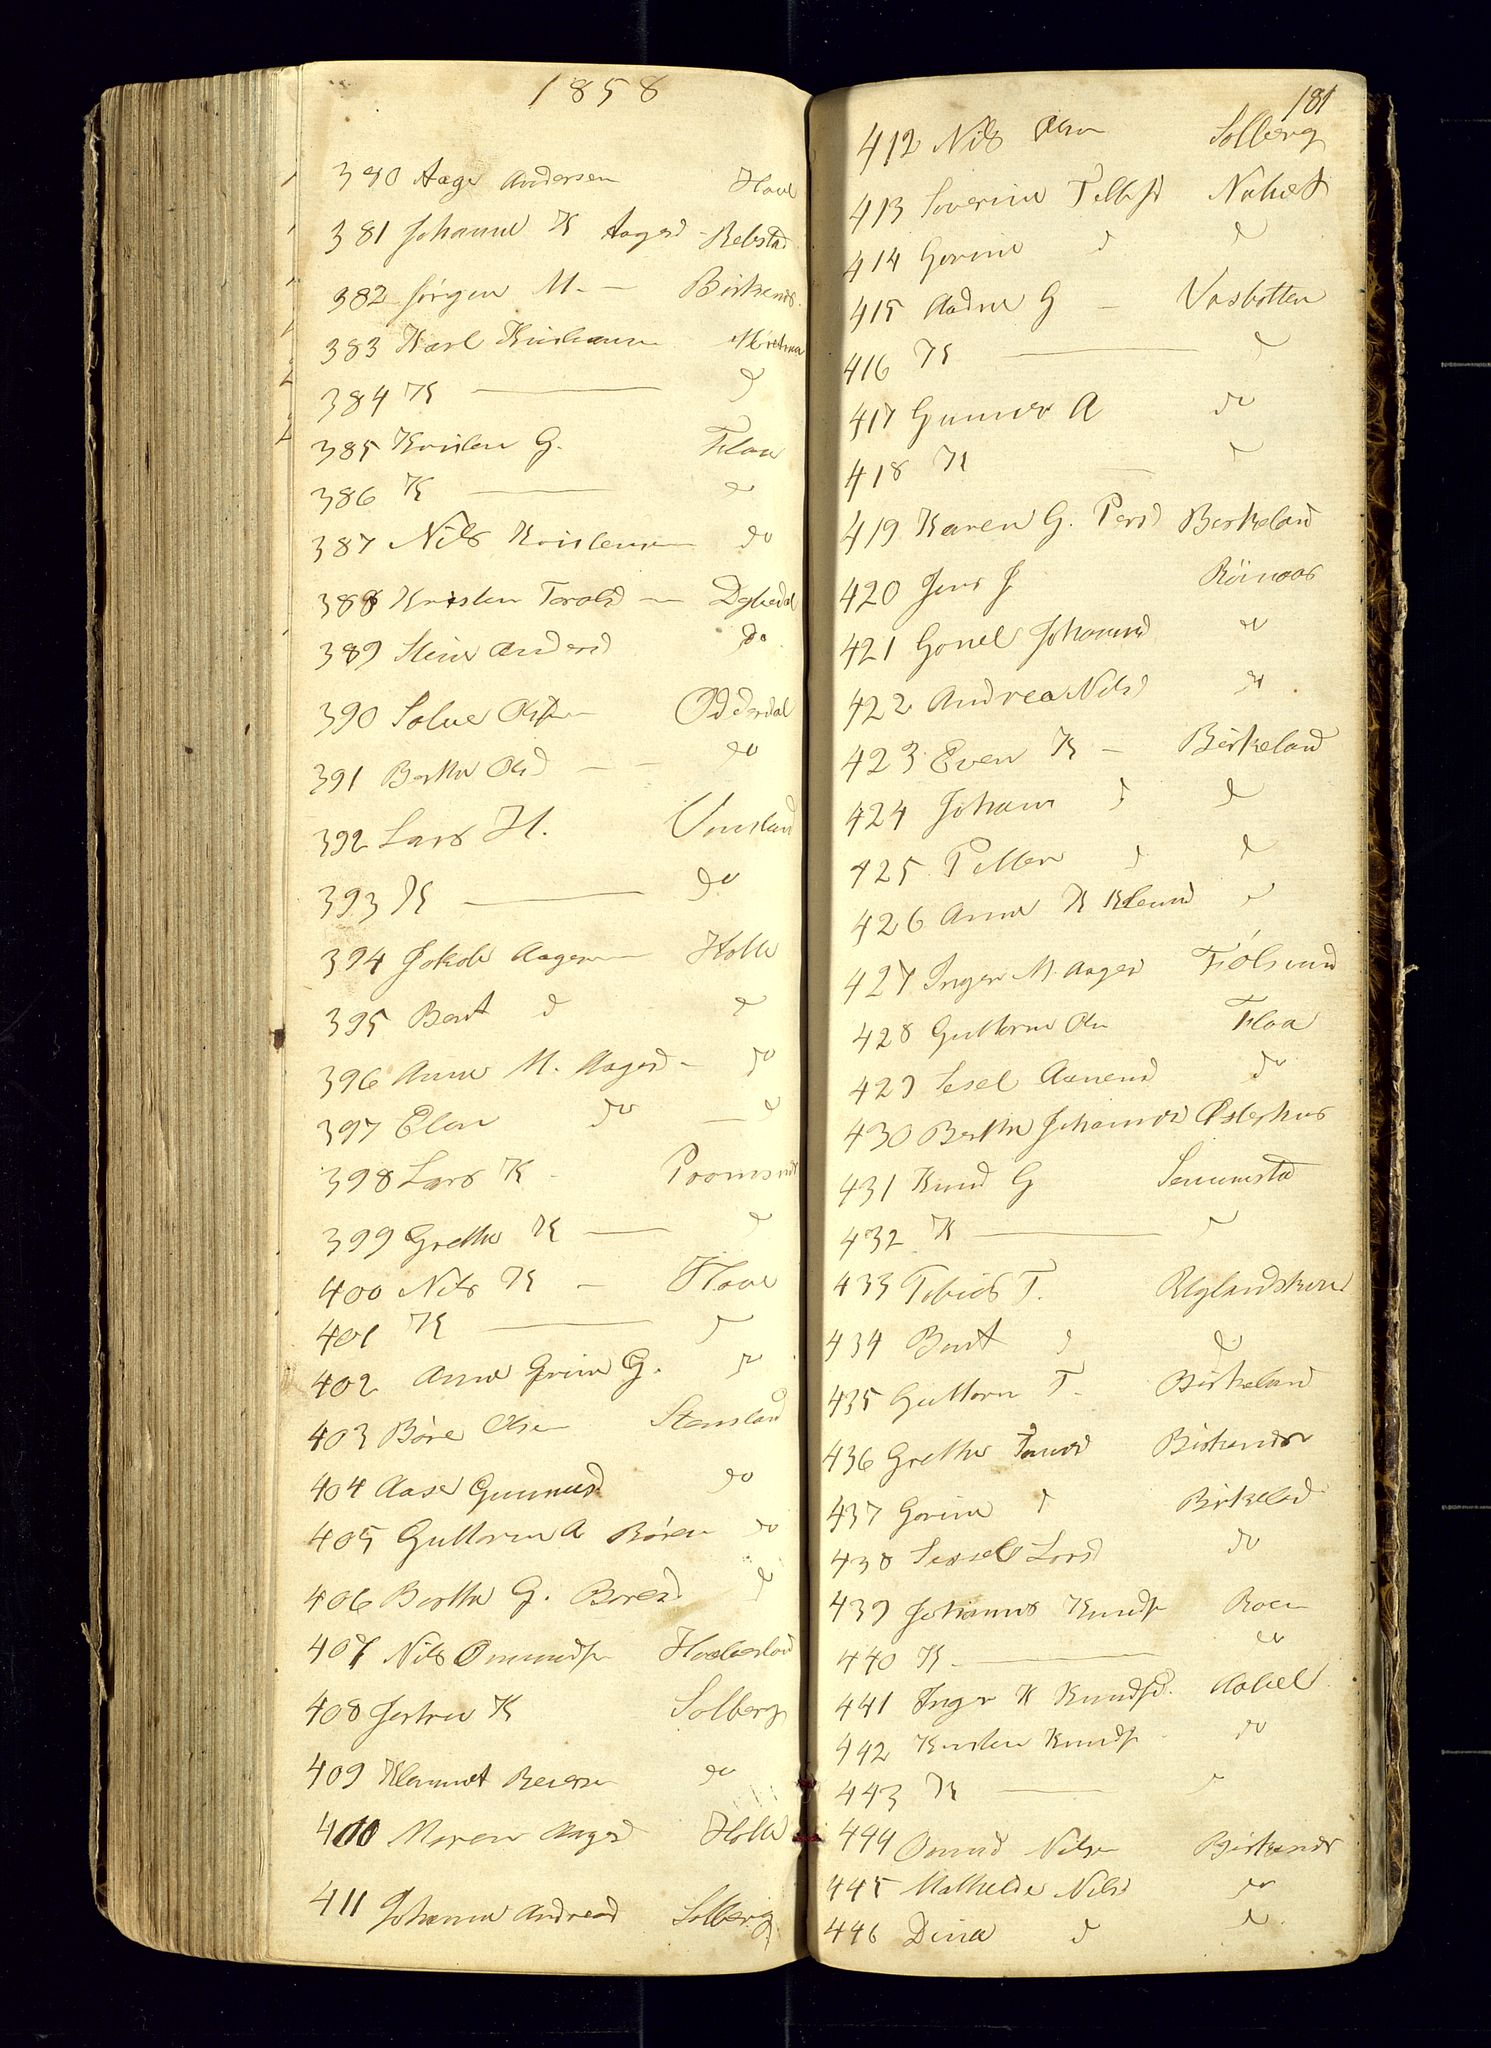 1858
380 Aage Andersen Hove
381 Johanne K Aagesd - Rebstad
382 Jørgen M. — Birkenes
383 Karl Kristiansen
384 K — d
385 Kristen G. Flaa
386 K — do
387 Nils Kristensen do
388 Kristen Terolds —
389 Stine Andersd do
390 Solve Olsen Oddersdal
391 Berthe Olsd — — do
392 Lars H. Vimsland
393 K — do
394 Jakob Aagesen Holle
395 Bent d d
396 Anne M. Aagesd - do
397 Elen do — d
398 Lars K -
399 Grethe K — d
400 Nils K — Hove
401 K — d
402 Anne Gurine G. do
403 Børe Olsen Stensland
404 Aase Gunnersd do
405 Guttorm A Børesen do
406 Berthe G. Boresd d
407 Nils Omundsen
408 K Solberg
409 Klemmet Reiersen do
410 Maren Aagesd Holle
411 Johanne Andreasd Solberg
181
412 Nils Olsen Solberg
413 Severine Tellefsd
414 Gurine d d
415 Aadne G — Vasbotten
416 K — d
417 Gunner A do
418 K — d
419 Karen G. Persd Berkeland
420 Jens J
421 Gonel Johannesd do
422 Andrea Nilsd do
423 Even K — Birkeland
424 Johans d d
425 Petter d d
426 Anne K Klemmd d
427 Inger M. Aagesd
428 Guttorm Olsen Flaa
429 Sesel Aanensd do
430 Berthe Johannesd Østerhus
431 Knud G Senumstad
432 K — d
433 Tobias T.
434 Bent d d
435 Guttorm T. Birkeland
436 Grethe Tomasd Birkenes
437 Gurine d Birkeland
438 Sessel Larsd do
439 Johannes Knudsen Roen
440 K — do
441 Inger K Knudsd. Aabel
442 Kirsten Knudsen do
443 K — d
444 Omund Nilsen Birkenes
445 Mathilde Nilsd do
446 Dina d d